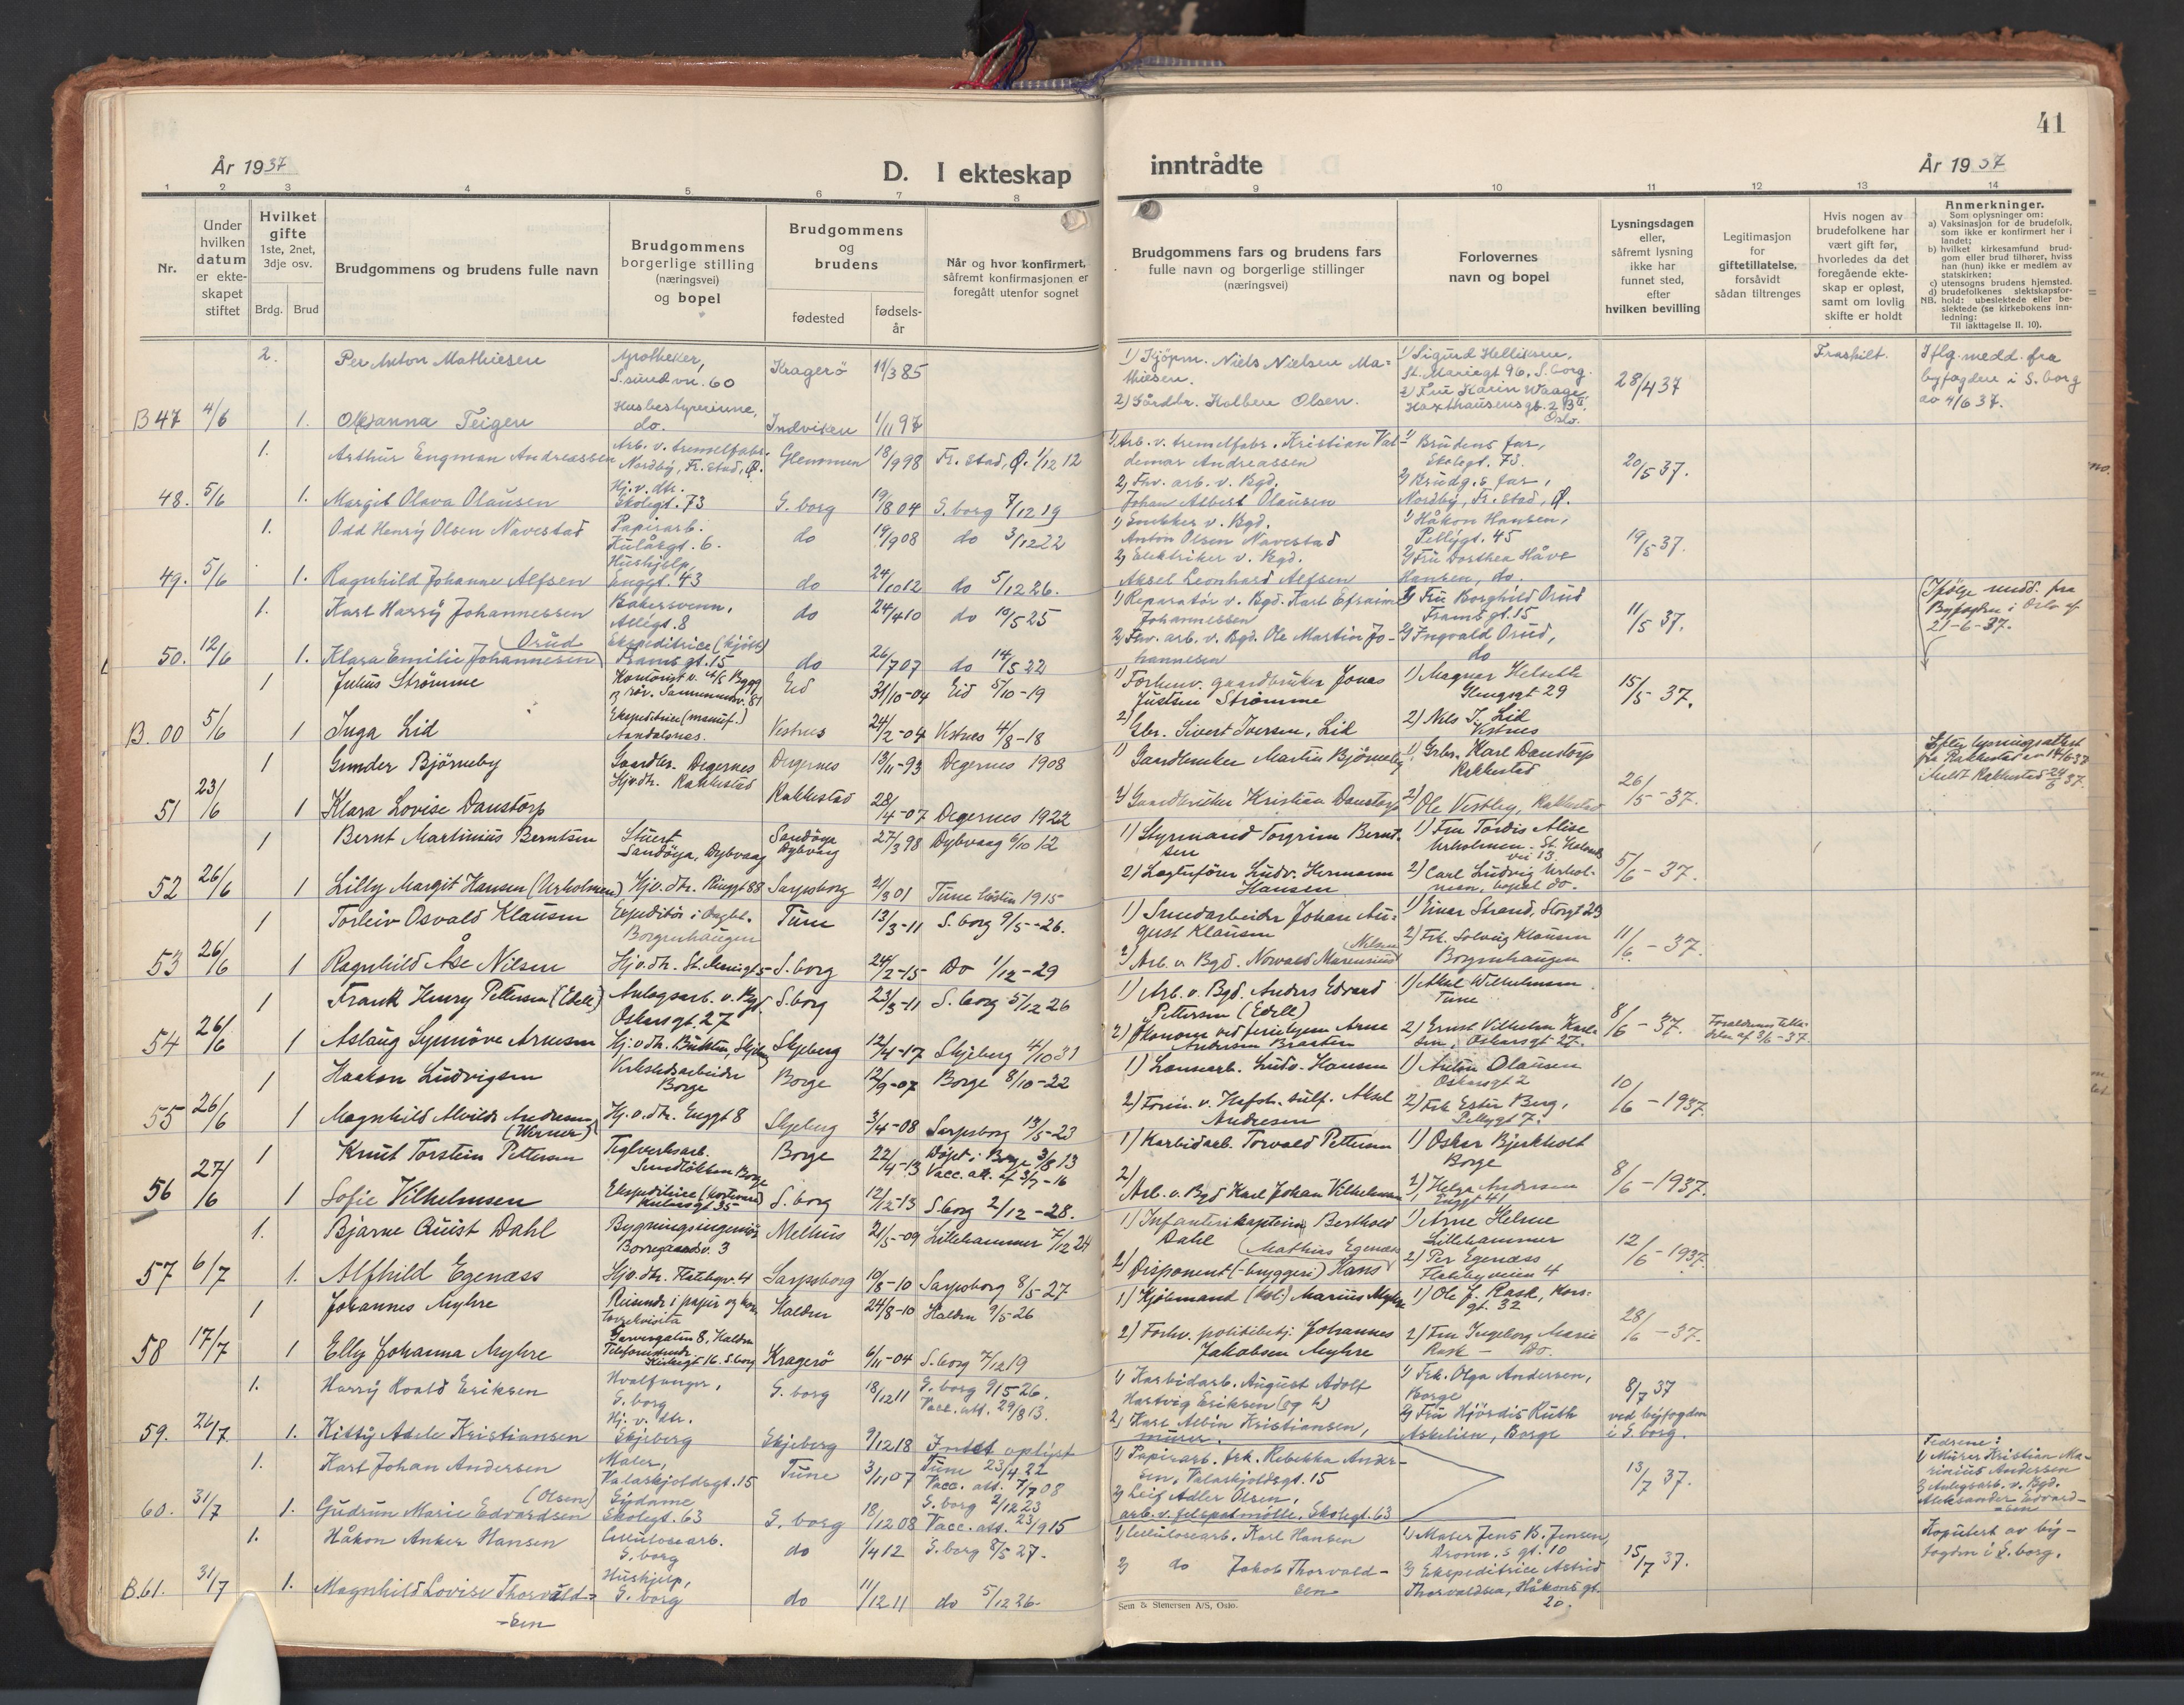 41
År 1937
D. I ekteskap
inntrådte
År 1937
1 2 3 4 5 6 7 8 9 10 11 12 13 14
Nr.
Under hvilken datum er ekteskapet stiftet
Hvilket gifte 1ste, 2net, 3dje osv.
Brdg. Brud
Brudgommens og brudens fulle navn
Brudgommens borgerlige stilling (næringsvei) og bopel
Brudgommens og brudens
fødested
fødsels-år
Når og hvor konfirmert, såfremt konfirmasjonen er foregått utenfor sognet
Brudgommens fars og brudens fars fulle navn og borgerlige stillinger (næringsvei)
Forlovernes navn og bopel
Lysningsdagen eller, såfremt lysning ikke har funnet sted, efter hvilken bevilling
Legitimasjon for giftetillatelse, forsåvidt sådan tiltrenges
Hvis nogen av brudefolkene har vært gift før, hvorledes da det foregående ekteskap er opløst, samt om lovlig skifte er holdt
Anmerkninger.
Som oplysninger om:
a) Vaksinasjon for de brudefolk, som ikke er konfirmert her i landet;
b) hvilket kirkesamfund brudgom eller brud tilhører, hviss han (hun) ikke er medlem av statskirken;
c) utensogns brudens hjemsted.
d) brudefolkenes slektskapsforhold: ubeslektede eller beslektede (se kirkebokens innledning:
NB.
Til iakttagelse II. 10).
2. Per Anton Mathiesen Apotheker, S.sundvn. 60 Kragerö 11/3 85
1) Kjöpm. Niels Nielsen Mathiesen. 1) Sigurd Helliksen, St. Mariegt 96, S.borg. Fraskilt. Iflg. medd. fra byfogden i S.borg av 4/6 37.
B 47 4/6 1. Olianna Teigen Husbestyrerinne, do. Indviken 1/11 97
2) Gårdbr. Kolben Olsen. 2) Fru Karin Waage, Haxthausensgt. 2 B, Oslo. 28/4 37
1. Arthur Engman Andreassen Nordby, Fr.stad, Ø. Glemmen 18/9 98 Fr.stad, Ø. 1/12 12
1) Arb. v. Kristian Valdemar Andreassen 1) Brudens far, Skolegt. 73. 20/5 37.
48. 5/6 1. Margit Olava Olausen Hj.v.dtr. Skolegt. 73 S.borg 19/8 04 S.borg 7/12 19
2) Fhv. arb. v. Bgd. Johan Albert Olausen 2) Brudg.s far, Nordby, Fr.stad, Ø.
1. Odd Henry Olsen Navestad Papirarb. Kulåsgt. 6. do 19/9 08 do 3/12 22
1) Snekker v. Bgd. Anton Olsen Navestad 1) Håkon Hansen, Pellygt. 45 19/5 37.
49. 5/6 1. Ragnhild Johanne Alfsen Hushjelp, Enggt. 43 do 24/10 12 do 5/12 26.
2) Elektriker v. Bgd. Aksel Leonhard Alfsen 2) Fru Dorthea Håve Hansen, do.
1. Karl Harry Johannessen Bakersvenn, Allégt. 8 do 24/4 10 do 10/5 25
1) Reparatör v. Bgd. Karl Efraim Johannessen 1) Fru Borghild Orud Framsgt. 15 11/5 37. Ifölge medd. fra Byfogden i Oslo af 21-6-37.
50. 12/6 1. Klara Emilie Johannesen (Orud) Ekspeditrice (kjött) Framsgt. 15 do 26/7 07 do 14/5 22
2) Fhv. arb. v. Bgd. Ole Martin Johannesen 2) Ingvald Orud, do
1 Julius Strömme Eid 31/10-04 Eid 5/10-19
1) Forhenv. gaardbruker Jonas Justsen Strömme 1) Magnar Helseth Glengsgt 29 15/5 37.
B. 00 5/6 1 Inga Lid Ekspeditrice (manuf.) Aandalsnes. Vestnes 24/2-04 Vestnes 4/8-18
2) Gbr. Sivert Iversen, Lid 2) Nils I. Lid Vestnes
1 Gunder Björneby Gaardbr. Degernes Degernes 13/11-93 Degernes 1908
1) Gaardbruker Martin Björneby 1) Grbr. Karl Danstorp Rakkestad 26/5-37. Efter lysningsattest fra Rakkestad av 14/6 37 Meldt Rakkestad 24/6 37.
51 23/6 1 Klara Lovise Danstorp Hjv.dtr. Rakkestad Rakkestad 28/4-07 Degernes 1922
2) Gaardbruker Kristian Danstorp 2) Ole Vestby, Rakkestad
1 Bernt Martinius Berntsen Stuert Sandöya, Dybvaag Sandöya Dybvaag 27/3 98 Dybvaag 6/10 12
1) Styrmand Torgrim Berntsen 1) Fru Tordis Alise Urholmen - vei 13 5/6-37.
52 26/6 1 Lilly Margit Hansen (Urholmen) Hjv.dtr. Ringgt 88 Sarpsborg 21/3 01 Tune hösten 1915
2) Ludv. Hermann Hansen 2) Carl Ludvig Urholmen, bopel do.
1 Torleiv Osvald Klausen Expeditör i Borgenhaugen Tune 13/3-11 S.borg 9/5-26.
1) Smedarbeider Johan August Klausen 1) Einar Strand, Storgt 23 11/6-37.
53 26/6 1 Ragnhild Åse Nilsen Hjv.dtr. St. Mariegt 5 S.borg 24/2-15 Do 1/12-29
2) Arb. v Bgd. Norvald Marensius Nilsen 2) Frk. Solveig Klausen Borgenhaugen
1 Frank Henry Pettersen (Edell) Anlegsarb. v. Bgd. Oskarsgt. 27 S.borg 23/3-11 S.borg 5/12 26
1) Arb. v. Bgd. Anders Edvard Pettersen (Edell) 1) Aksel Wilhelmsen Tune 8/6-37.
54 26/6 1 Aslaug Synnöve Arnesen Hj.v.dtr. Skjeberg Skjeberg 12/4-17 Skjeberg 4/10 31
2) Ökonom ved feriehjem Arne Andersen Braaten 2) Ernst Vilhelm Karlsen, Oskarsgt 27.
1 Haakon Ludvigsen Verkstedsarbeider Borge Borge 12/9-07 Borge 8/10-22
1) Ludv. Hansen 1) Anton Olausen Oskarsgt 2 10/6-1937.
55 26/6 1 Magnhild Alvilde Andresen (Werner) Hj.v.dtr. Enggt 8 Skjeberg 3/4-08 Sarpsborg 13/5-23
2) Form. v. Hafsl. sulf. Aksel Andresen 2) Frk Ester Berg, Pellygt 7.
1 Knut Torstein Pettersen Teglverksarb. Borge Borge 22/4-13 Döpt i Borge 3/8 13 Vacc. att. af 3/7-16
1) Karbidarb. Torvald Pettersen 1) Oskar Bjerkholt Borge 8/6-1937.
56 27/6 1 Sofie Vilhelmsen S.borg 12/12-13 S.borg 2/12-28.
2) Arb. v. Bgd Karl Johan Vilhelmsen 2) Helga Andresen Enggt 41
1. Bjarne Quist Dahl Bygningsingeniör Borregaardsv. 3 Melhus 21/5-09 Lillehammer 7/12 24
1) Infanterikaptein Berthold Dahl 1) Arne Helme Lillehammer 12/6-1937.
57 6/7 1. Alfhild Egenæss Hjv.dtr. Flatebyv. 4 Sarpsborg 10/8-10 Sarpsborg 8/5-27
2) Disponent (-bryggeri) Hans Mathias Egenæs 2) Per Egenæss Flatebyveien 4
1 Johannes Myhre Reisende i papir og kontorrekvisita Garvergaten 8, Halden Halden 24/8-10 Halden 9/5-26
1) Kjöbmand (kol.) Marius Myhre 1) Ole J. Rask, Korsgt. 32 28/6-37.
58 17/7 1 Elly Johanna Myhre Kirkegt 16. S.borg Kragerö 6/11-04 S.borg 7/12 19
2) Forhv. politibetj. Johannes Jakobsen Myhre 2) Fru Ingeborg Marie Rask - Do.
1. Harry Hoald Eriksen Hvalfanger, S.borg S.borg 18/12 11 S.borg 9/5 26. Vacc. att. 29/8 13.
1) Karbidarb. August Adolf Hartvig Eriksen 1) Frk. Olga Andersen, Borge 8/7 37 ved byfogden i S.borg.
59. 26/7 1. Kitty Adele Kristiansen Hj.v.dtr. Skjeberg Skjeberg 9/12 18 Intet oplyst
2) Karl Albin Kristiansen, murer. 2) Fru Hjördis Ruth Askelien, Borge
1. Karl Johan Andersen Maler, Valaskjoldsgt. 15 Tune 3/11 07 Tune 23/4 22 Vacc. att. 7/7 08
1) Papirarb. frk. Rebekka Andersen, Valaskjoldsgt. 15 13/7 37. Fedrene: 1) Murer Kristian Marinius Andersen 2) Anlegsarb. v. Bgd. Aleksander Edvardsen
60. 31/7 1. Gudrun Marie Edvardsen (Olsen) Sydame, Skolegt. 63 S.borg 18/12 08 S.borg 2/12 23 Vacc. att. 23/9 15
2) Leif Adler Olsen, arb. v. felspatmölle, Skolegt. 63
1. Håkon Anker Hansen Cellulosearb. S.borg do 1/4 12 S.borg 8/5 27.
1) Cellulosearb. Karl Hansen 1) Maler Jens B. Jensen, Dronn.s gt. 10 15/7 37. Kopulert av byfogden i S.borg.
B.61. 31/7 1. Magnhild Lovise Thorvaldsen Hushjelp, S.borg do 11/12 11 do 5/12 26.
2) do Jakob Thorvaldsen 2) Ekspeditrice Astrid Thorvaldsen, Håkonsgt. 20.
Sem & Stenersen A/S, Oslo.